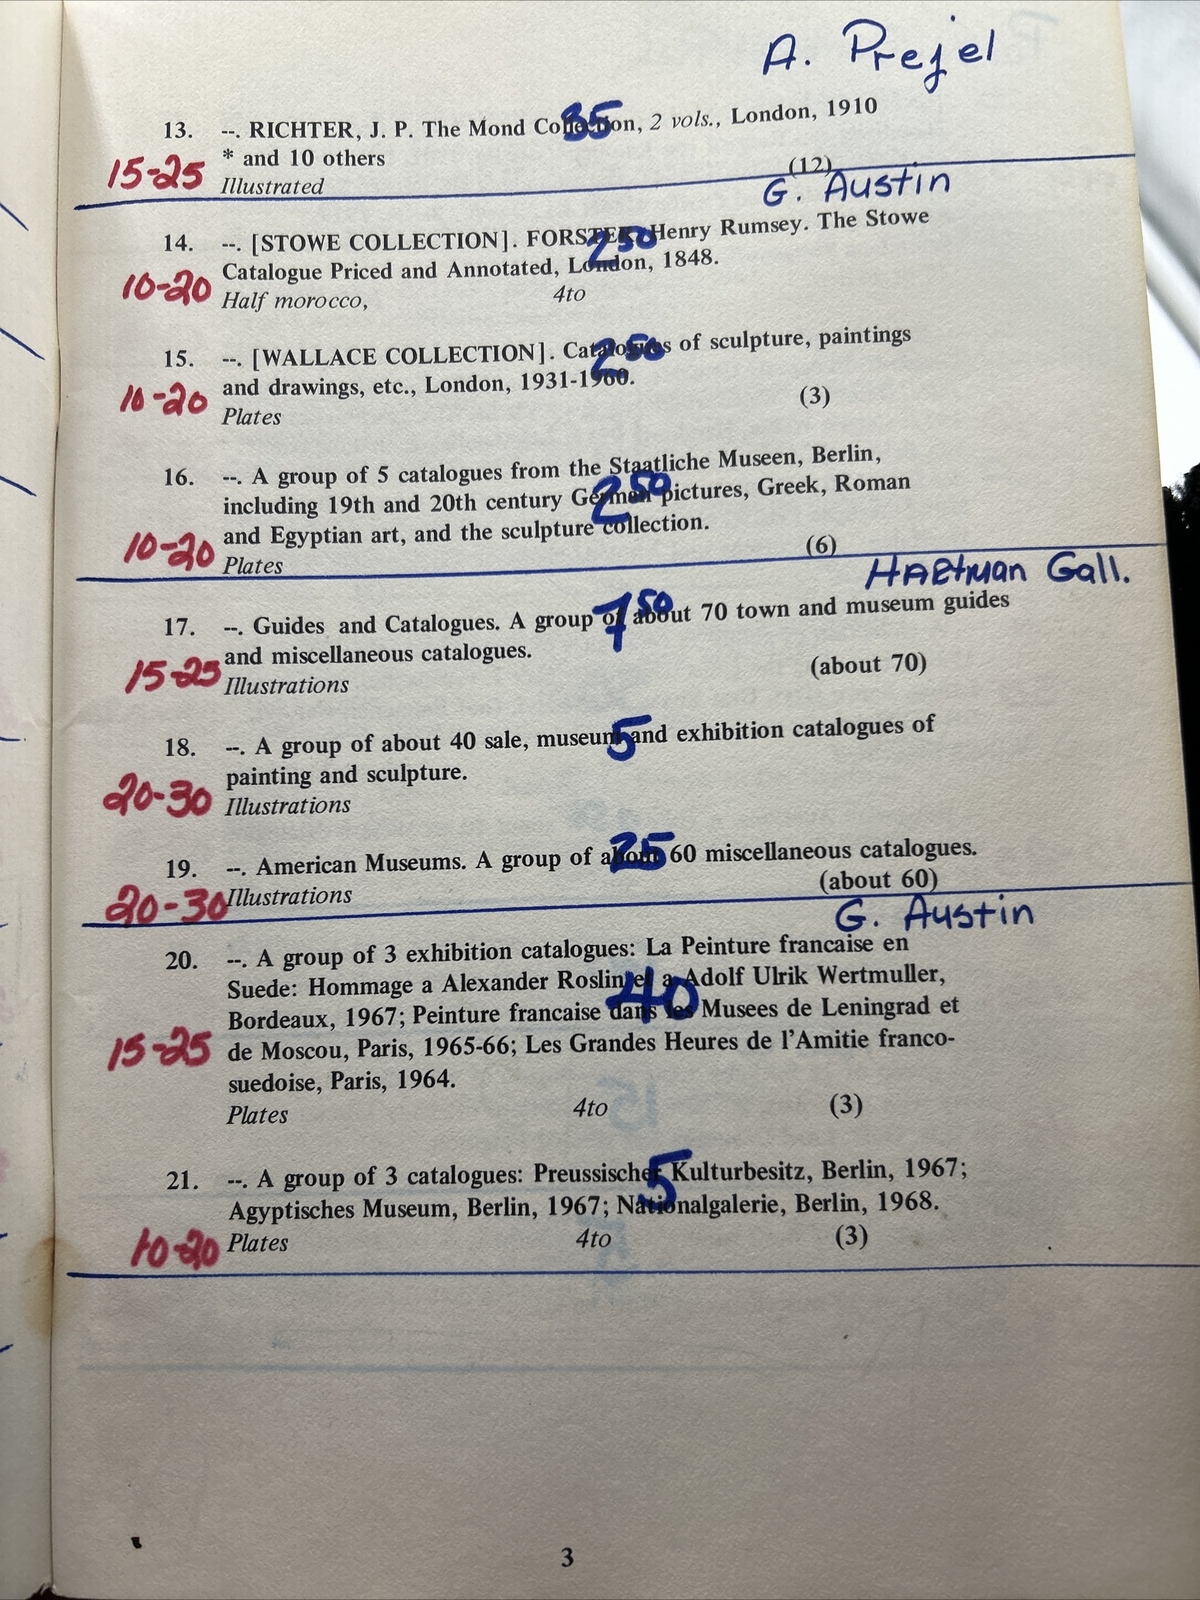 A. Prejel
13. --. RICHTER, J. P. The Mond Collection, 2 vols., London, 1910
35
* and 10 others (12)
15-25 Illustrated
G. Austin
14. --. [STOWE COLLECTION]. FORSTER, Henry Rumsey. The Stowe
2 50
Catalogue Priced and Annotated, London, 1848.
10-20 Half morocco, 4to
15. --. [WALLACE COLLECTION]. Catalogues of sculpture, paintings
2 50
and drawings, etc., London, 1931-1960.
10-20 Plates (3)
16. --. A group of 5 catalogues from the Staatliche Museen, Berlin,
including 19th and 20th century German pictures, Greek, Roman
2 50
and Egyptian art, and the sculpture collection.
10-20 Plates (6)
Hartman Gall.
17. --. Guides and Catalogues. A group of about 70 town and museum guides
7 50
and miscellaneous catalogues.
15-25 Illustrations (about 70)
18. --. A group of about 40 sale, museum and exhibition catalogues of
5
painting and sculpture.
20-30 Illustrations
19. --. American Museums. A group of about 60 miscellaneous catalogues.
25
20-30 Illustrations (about 60)
G. Austin
20. --. A group of 3 exhibition catalogues: La Peinture francaise en
Suede: Hommage a Alexander Roslin et a Adolf Ulrik Wertmuller,
40
Bordeaux, 1967; Peinture francaise dans les Musees de Leningrad et
15-25 de Moscou, Paris, 1965-66; Les Grandes Heures de l'Amitie franco-
suedoise, Paris, 1964.
Plates 4to (3)
21. --. A group of 3 catalogues: Preussischer Kulturbesitz, Berlin, 1967;
5
Agyptisches Museum, Berlin, 1967; Nationalgalerie, Berlin, 1968.
10-20 Plates 4to (3)
3